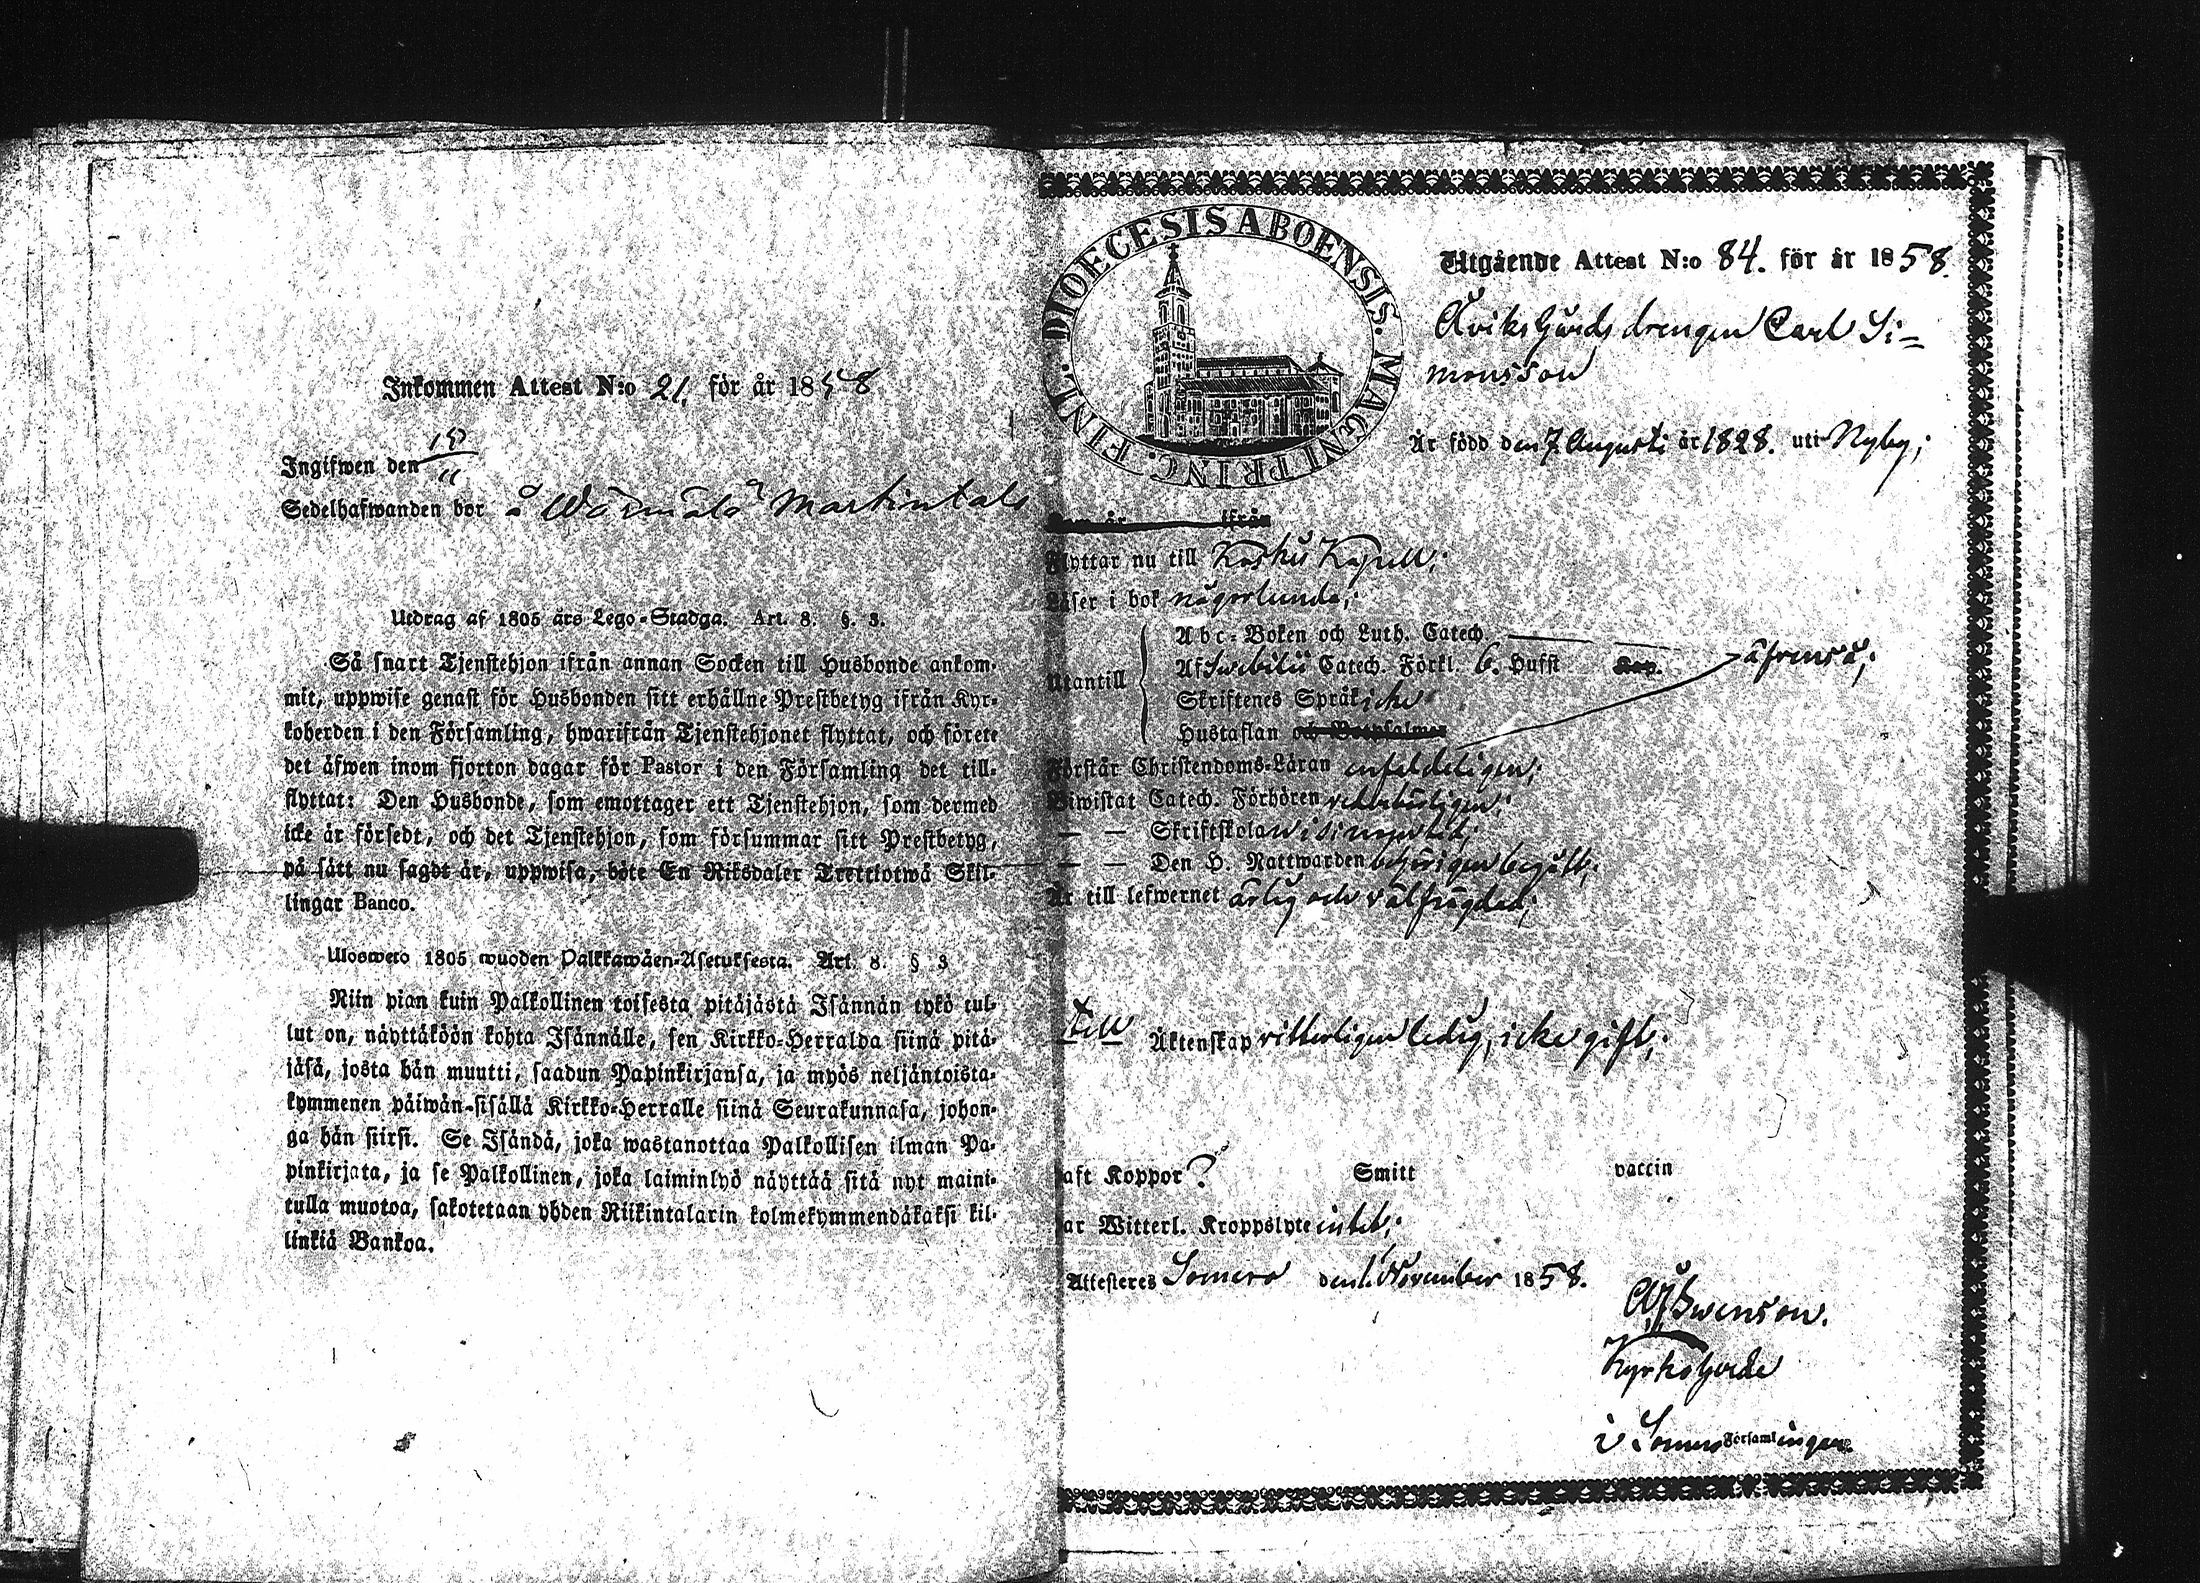 Inkommen Attest N:o 21. för år 1858
Ingifwen den
Sedelhafwanden bor å Martintalo
Utdrag af 1805 års Lego-Stadga. Art. 8. §. 3.
Så snart Tjenstehjon ifrån annan Socken till Husbonde ankom-
mit, uppwise genast för Husbonden sitt erhållne Prestbetyg ifrån Kyr-
koherden i den Församling, hwarifrån Tjenstehjonet flyttat, och förete
det äfwen inom fjorton dagar för Pastor i den Församling det till-
flyttat: Den Husbonde, som emottager ett Tjenstehjon, som dermed
icke är försedt, och det Tjenstehjon, som försummar sitt Prestbetyg,
på sätt nu sagdt är, uppwisa, böte En Riksdaler Trettiotwå Skil-
lingar Banco.
Ulosweto 1805 wuoden Palkkawäen-Asetuksesta. Art. 8. § 3
Niin pian kuin Palkollinen toisesta pitäjästä Isännän tykö tul-
lut on, näyttäköön kohta Isännälle, sen Kirkko-Herralda siinä pitä-
jäsä, josta hän muutti, saadun Papinkirjansa, ja myös neljäntoista-
kymmenen päiwän-sisällä Kirkko-Herralle siinä Seurakunnasa, johon-
ga hän siirsi. Se Isändä, joka wastanottaa Palkollisen ilman Pa-
pinkirjata, ja se Palkollinen, joka laiminlyö näyttää sitä nyt maini-
tulla muotoa, sakotetaan yhden Riikintalarin kolmekymmendäkaksi kil-
linkiä Bankoa.
DIOECESIS ABOENSIS. MAGNI PRINC. FINL.
Utgående Attest N:o 84. för år 1858.
drengen Carl Si-
monsson
Är född den 7. Augusti år 1828. uti Nyby;
Som är ifrån
Flyttar nu till Koskis Kapell;
Läser i bok någorlunda;
Utantill
Abc-Boken och Luth. Catech.
Af Swebilii Catech. Förkl. 6. Hufst Kap.
Skriftenes Språk icke
Hustaflan och Botpsalmer
äfvenså;
Förstår Christendoms-Läran enfaldeligen;
Biwistat Catech. Förhören
— — Skriftskolan
— — Den H. Nattwarden behörigen begått;
Är till lefwernet ärlig och välfrägdad;
Till Äktenskap vitterligen ledig, icke gift;
Haft Koppor? Smitt vaccin
Har Witterl. Kroppslyte intet;
Attesteres Somero den 1 November 1858.
Swenson.
Kyrkoherde
i Somero Församlingar.